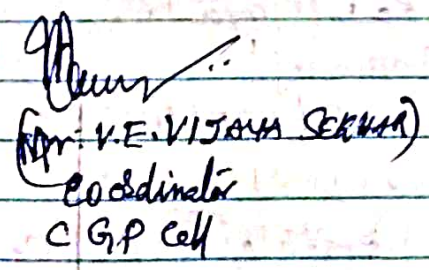 (Mr. V.E. VIJAYA SEKHAR)
Coordinator
C G P Cell